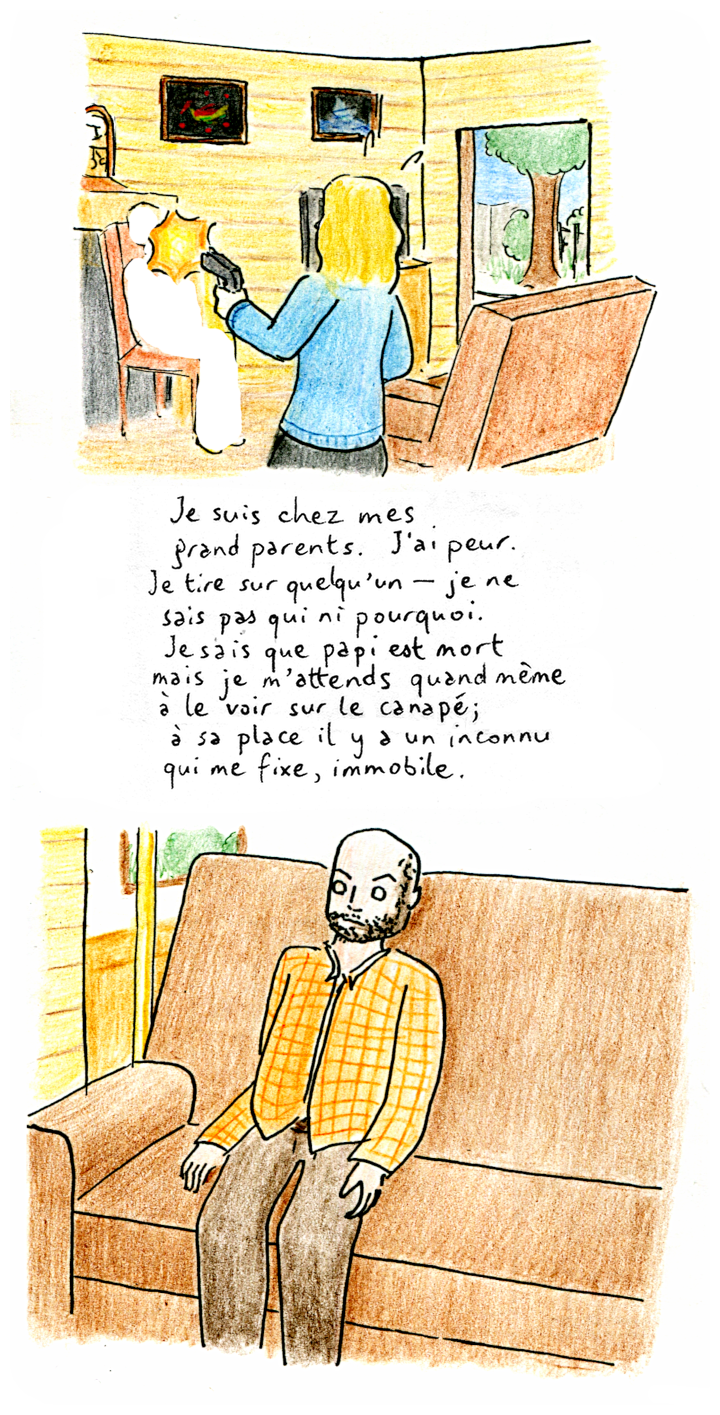 Je suis chez mes
grand parents. J'ai peur.
Je tire sur quelqu'un — je ne
sais pas qui ni pourquoi.
Je sais que papi est mort
mais je m'attends quand même
à le voir sur le canapé;
à sa place il y a un inconnu
qui me fixe, immobile.